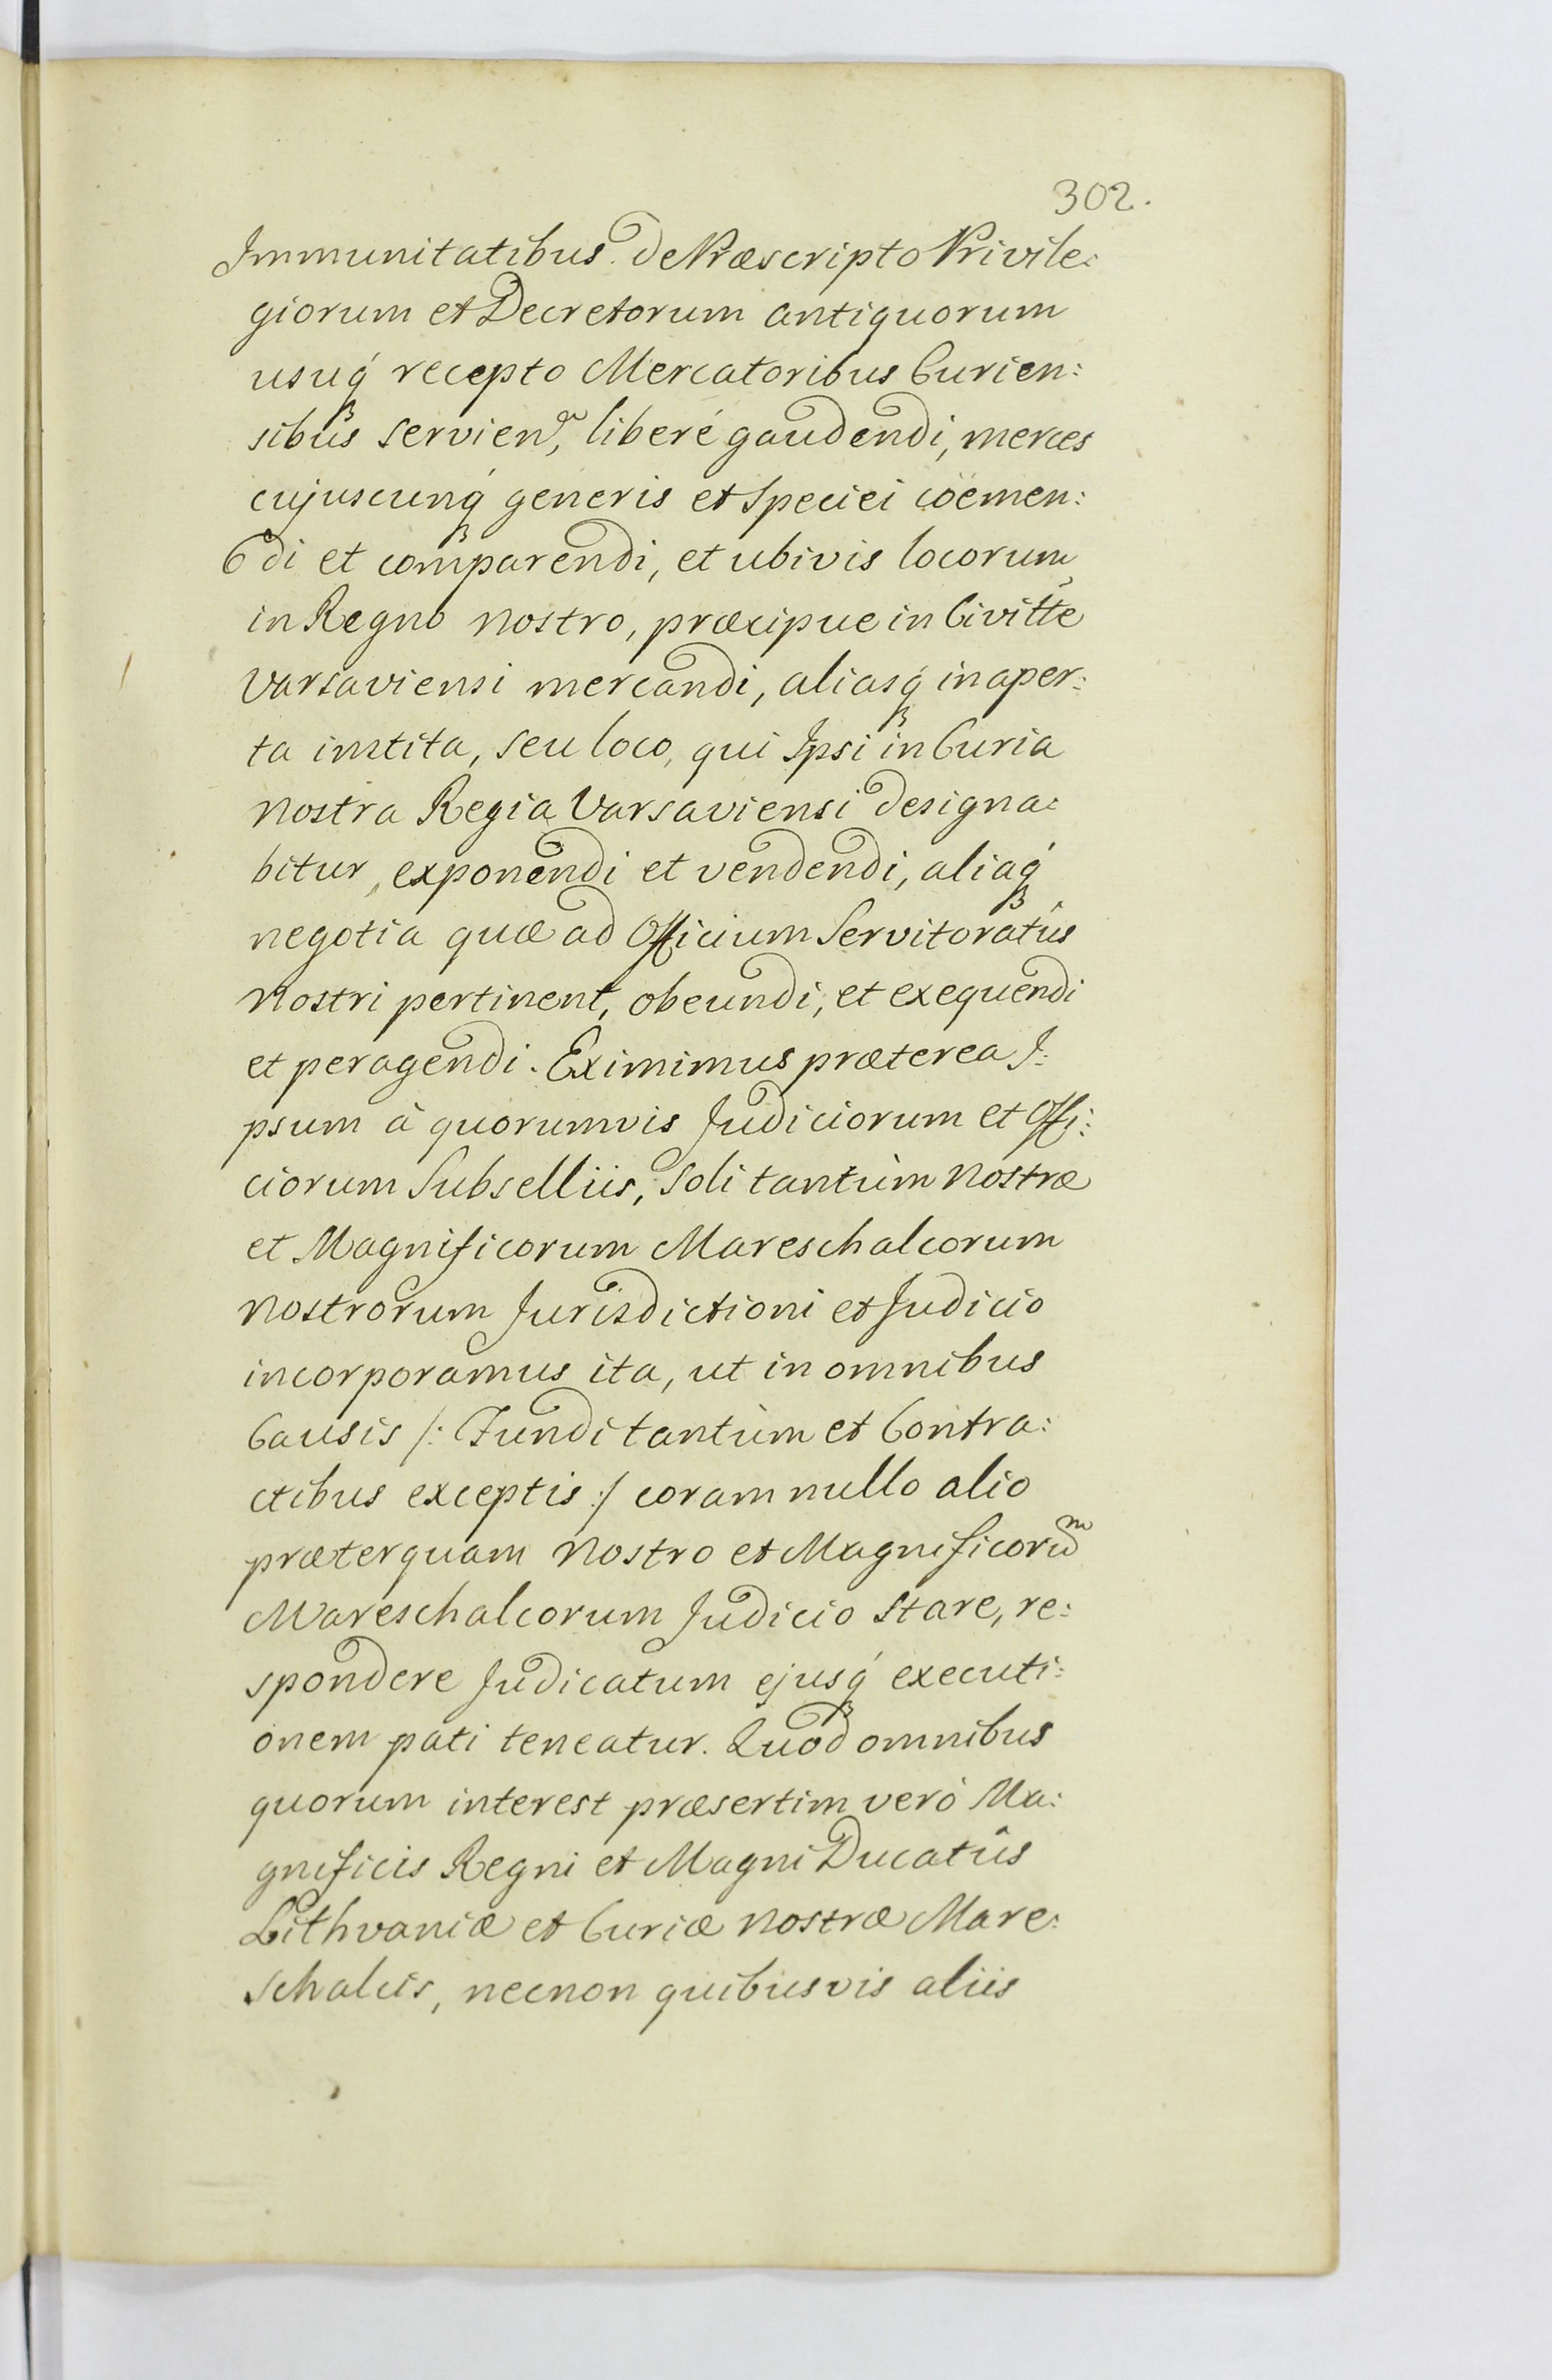 302.
Immunitatibus de Præscripto Privile:
giorum et Decretorum antiquorum
usuq́ recepto Mercatoribus Curien:
sibus servien, liberé gaudendi, merces
cujuscunq́ generis et Speciei coëmen:
di et comparendi, et ubivis locorum
in Regno nostro, præcipue in Civitte
Varsaviensi mercandi, aliasq́ in aper:
ta instita, seu loco, qui Ipsi in Curia
nostra Regia Varsaviensi designa:
bitur, exponendi et vendendi, aliaq́
negotia quæ ad Officium Servitoratûs
nostri pertinent, obeundi, et exequendi
et peragendi. Eximimus præterea I:
psum à quorumvis Judiciorum et Offi:
ciorum Subselliis, soli tantùm nostræ
et Magnificorum Mareschalcorum
nostrorum Jurisdictioni et Judicio
incorporamus ita, ut in omnibus
Causis /: Fundi tantùm et Contra:
ctibus exceptis :/ coram nullo alio
præterquam nostro et Magnificorum
Mareschalcorum Judicio stare, re:
spondere Judicatum ejusq́ executi:
onem pati teneatur. Quod omnibus
quorum interest præsertim verò Ma:
gnificis Regni et Magni Ducatûs
Lithvaniæ et Curiæ nostræ Mare:
schalcis, necnon quibusvis aliis